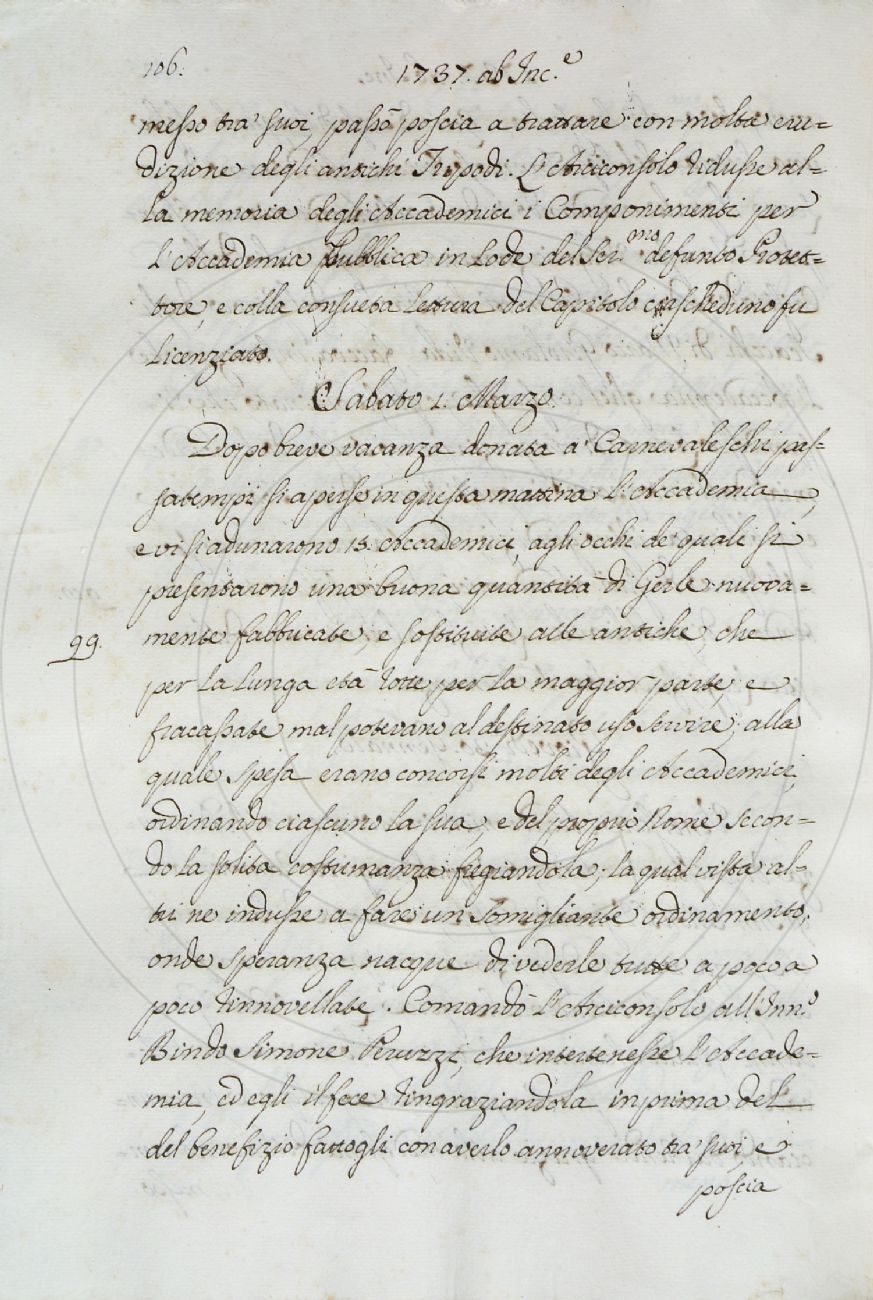 106.
1737. ab Inc.e
messo tra' suoi, passò poscia a trattare con molta eru=
dizione degli antichi Tripodi. L'Arciconsolo ridusse al=
la memoria degli Accademici i Componimenti per
l'Accademia Pubblica in Lode del Ser.mo defunto Protet=
tore, e colla consueta Lettura del Capitolo ciascheduno fu
Licenziato.
Sabato 1. Marzo.
Dopo breve vacanza donata a' Carnevaleschi pas=
satempi si aperse in questa mattina l'Accademia,
e vi si adunarono 15. Accademici, agli occhi de' quali si
presentarono una buona quantità di Gerle nuova=
mente fabbricate, e sostituite alle antiche, che
99.
per la lunga età rotte per la maggior parte, e
fracassate mal potevano al destinato uso servire; alla
quale spesa erano concorsi molti degli Accademici,
ordinando ciascuno la sua, e del proprio Nome secon=
do la solita costumanza fregiandola; la qual vista al=
tri ne indusse a fare un somigliante ordinamento,
onde speranza nacque di vederle tutte a poco a
poco rinnovellate. Comandò l'Arciconsolo all'Inn.o
Bindo Simone Peruzzi, che intertenesse l'Accade=
mia, ed egli il fece ringraziandola in prima del
del benefizio fattogli con averlo annoverato tra' suoi, e
poscia